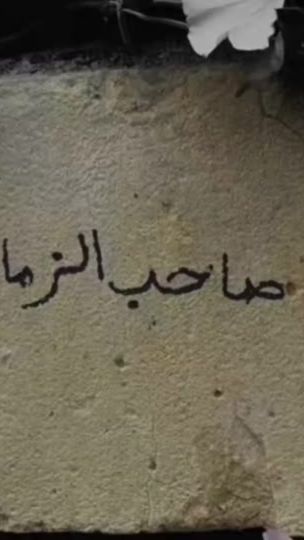 صاحب الزما